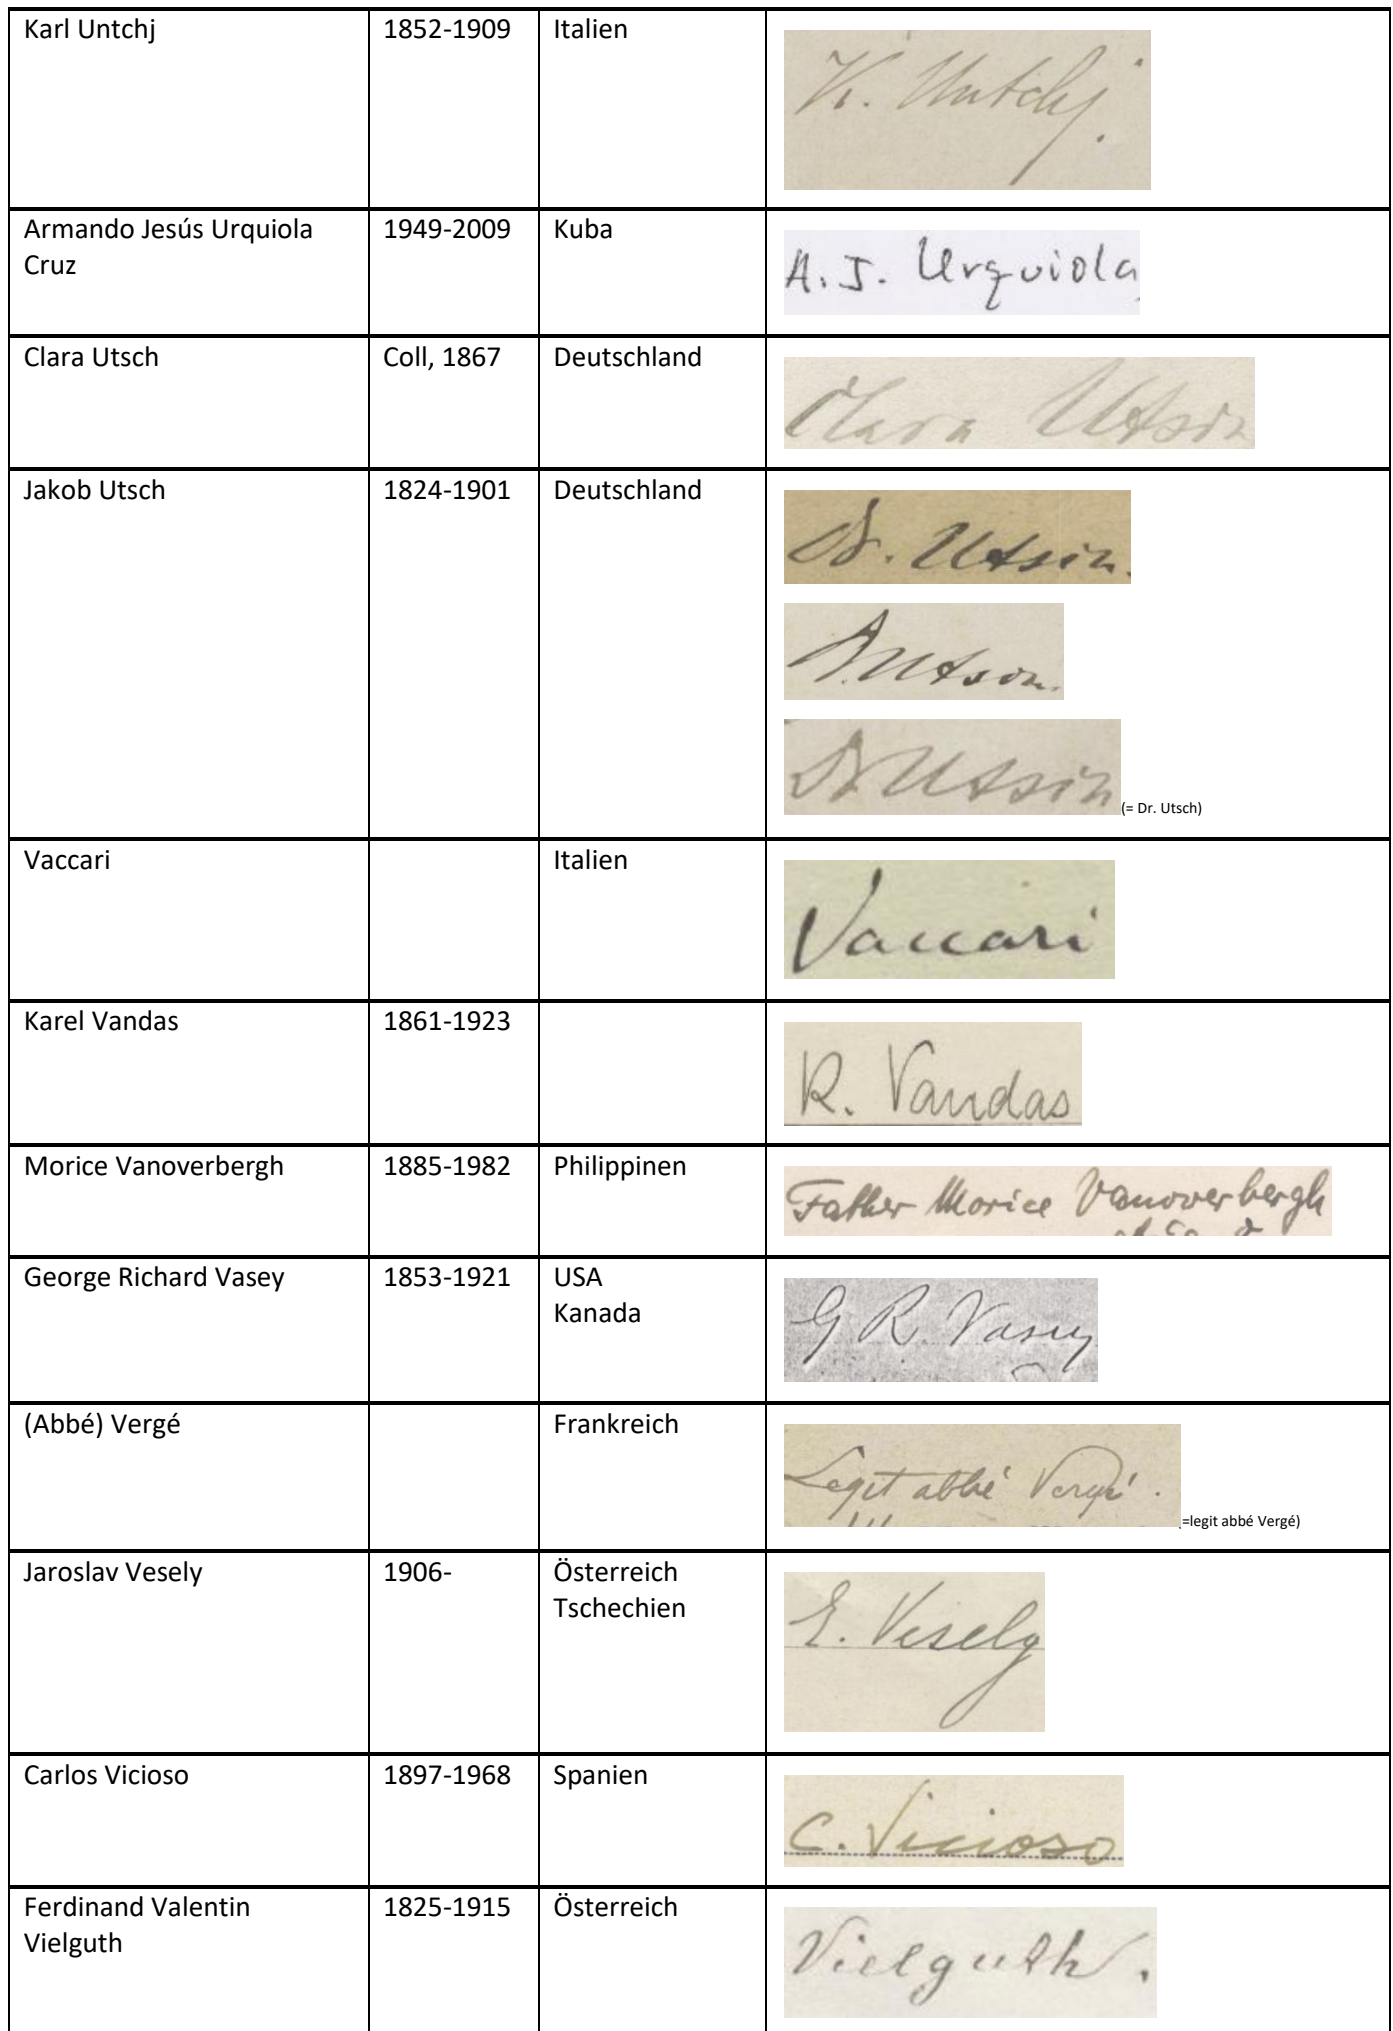 Karl Untchj 1852-1909 Italien
K. Untchj.
Armando Jesús Urquiola 1949-2009 Kuba
Cruz
A. J. Urquiola
Clara Utsch Coll, 1867 Deutschland
Clara Utsch
Jakob Utsch 1824-1901 Deutschland
Dr. Utsch.
Dr. Utsch.
Dr Utsch
(= Dr. Utsch)
Vaccari Italien
Vaccari
Karel Vandas 1861-1923
K. Vandas
Morice Vanoverbergh 1885-1982 Philippinen
Father Morice Vanoverbergh
George Richard Vasey 1853-1921 USA
Kanada
G R. Vasey
(Abbé) Vergé Frankreich
Legit abbé Vergé.
(=legit abbé Vergé)
Jaroslav Vesely 1906- Österreich
Tschechien
E. Vesely
Carlos Vicioso 1897-1968 Spanien
C. Vicioso
Ferdinand Valentin 1825-1915 Österreich
Vielguth
Vielguth.